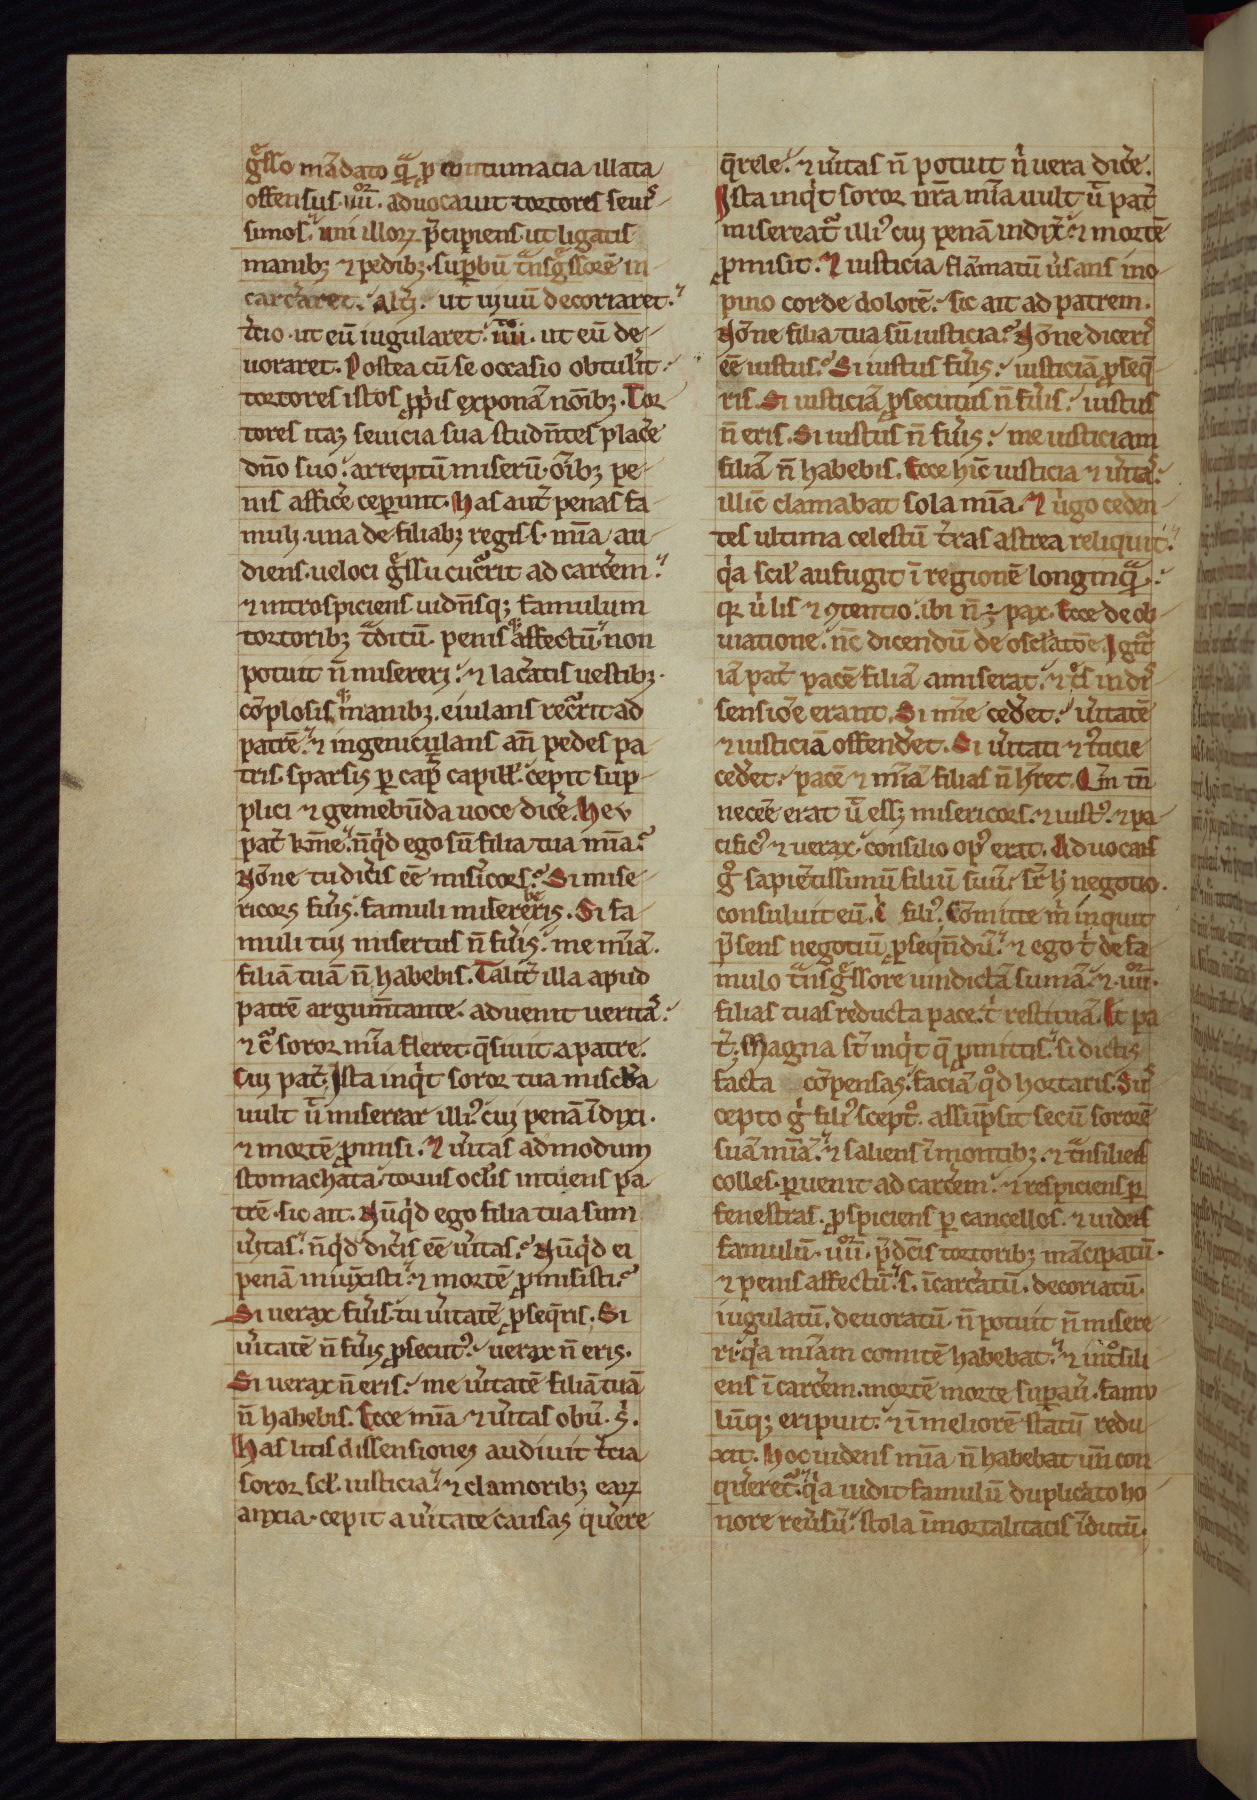 gͤsso mādato qᷓ ꝑ contumacia illata
offensus. iiiiᵒʳ. aduocauit tortores seuiſ
simos. uni illoꝝ p̄cipiens ut ligatis
manibꝫ ⁊ pedibꝫ. suꝑbū tᷓnsgͤssorē in
carc̄aret. Alij. ut uiuū decoriaret.
t̄cio. ut eū iugularet. iiiiᵒ. ut eū de
uoraret. Postea cū se occasio obtul̄it
tortores istos ꝓp̄is exponā noībꝫ. Tor
tores itaꝫ seuicia sua studn̄tes plac̄e
dn̄o suo. arreptū miserū. oībꝫ pe
nis affic̄e ceꝑunt. Has aut̄ penas fa
muli. una de filiabꝫ regis .s. mīa au
diens. ueloci gͤssu cucr̄it ad carc̄em.
⁊ introspiciens uidn̄sqꝫ famulum
tortoribꝫ tᷓditū. penis affectū. non
potuit n̄ misereri. ⁊ lac̄atis uestibꝫ.
cōplosis manibꝫ. eiulans recr̄it ad
patrē. ⁊ ingeniculans an̄ pedes pa
tris. sparsis ꝑ cap̄ capill̄. cepit sup
plici ⁊ gemebūda uoce dic̄e. Heu
pat̄ km̄e. n̄qͥd ego sū filia tua mīa.
Nōne tu dic̄is eē mis̄icors. Si mise
ricors fūis. famuli misereberis. Si fa
muli tui misertus n̄ fūis. me mīā.
filiā tuā n̄ habebis. Talit̄ illa apud
patrē argum̄tante. aduenit ueritaſ.
⁊ cᷓ soror mīa fleret. q̄siuit a patre.
Cui pat̄. Ista inqͥt soror tua mis̄cdīa
uult ut miserear illi᷒. cui penā īdixi.
⁊ mortē ꝓmisi. ⁊ ūitas admodum
stomachata. toruis ocl̄is intuens pa
trē. sic ait. Nūqͥd ego filia tua sum
ūitas. n̄qͥd dic̄is eē ūitas. Nūqͥd ei
penā iniūxisti. ⁊ mortē ꝓmisisti.
Si uerax fūis. tu ūitatē ꝓseq̄ris. Si
ūitatē n̄ fūis ꝓsecut᷒. uerax n̄ eris.
Si uerax n̄ eris. me ūitatē filiā tuā
n̄ habebis. Ecce mīa ⁊ ūitas obū. s᷒.
Has litis dissensiones audiuit t̄cia
soror scl̄. iusticia. ⁊ clamoribꝫ eaꝝ
anxia. cepit a ūitate causas quͤere
q̄rele. ⁊ ūitas n̄ potuit nͥ uera dic̄e.
Ista inqͥt soror nr̄a mīa uult ut pat̄
misereat᷒ illi᷒ cui penā indix̄. ⁊ mortē
ꝓmisit. ⁊ iusticia flāmatū ūsans ino
pino corde dolorē. sic ait ad patrem.
Nōne filia tua sū iusticia. Nōne diceriſ
eē iustus. Si iustus fūis. iusticiā ꝓseq̄
ris. Si iusticiā ꝓsecutus n̄ fūis. iustus
n̄ eris. Si iustus n̄ fūis. me iusticiam
filiā n̄ habebis. Ecce hīc iusticia ⁊ ūitaſ.
illīc clamabat sola mīa. ⁊ uͥgo ceden
tes ultima celestū t̄ras astrea reliquit.
qͥa scil̄ aufugit ī regionē longinqᷓ.
qꝛ uͥ lis ⁊ ꝯtentio. ibi n̄ ꝫ pax. Ecce de ob
uiatione. nc̄ dicendū de osclātōe. Igit᷒
iā pat̄ pacē filiā amiserat. ⁊ tͦs in diſ
sensiōe erant. Si mīe cedet̄. ūitatē
⁊ iusticiā offenderet. Si ūitati ⁊ iᷤticie
cederet. pacē ⁊ mīā filias n̄ hr̄et. Qm̄ tn̄
necēe erat ut essꝫ misericors. ⁊ iust᷒. ⁊ pa
cific᷒ ⁊ uerax. consilio op᷒ erat. Aduocans
gͦ sapiētissimū filiū suū. sr̄ h negotio.
consuluit eū. Et fili᷒. Cōmitte mͥ inquit
p̄sens negotiū ꝓseqn̄dū. ⁊ ego tͥ de fa
mulo tᷓnsgͤssore uindictā sumā. ⁊ .iiiiᵒʳ.
filias tuas reducta pace. tͥ restituā. Et pa
t̄. Magna st̄ inqͥt q̄ ꝓmittis. si dictis
facta cōpensas. faciā qͦd hortaris. Suſ
cepto gͦ fili᷒ sceptͦ. assūpsit secū sororē
suā mīā. ⁊ saliens ī montibꝫ. ⁊ tᷓnsiliens
colles. ꝑuenit ad carc̄em. ⁊ respiciens ꝑ
fenestras. ꝓspiciens ꝑ cancellos. ⁊ uidens
famulū. iiiiᵒʳ. p̄dc̄is tortoribꝫ mācipatū.
⁊ penis affectū. s. īcarc̄atū. decoriatū.
iugulatū. deuoratū. n̄ potuit n̄ misere
ri. qͥa mīam comitē habebat. ⁊ intͦsili
ens ī carc̄em. mortē morte suꝑau̅. famu
lūqꝫ eripuit. ⁊ ī meliorē statū redu
xit. Hoc uidens mīa n̄ habebat un̄ con
quͤeret᷒. qͥa uidit famulū duplicato ho
nore reūsū. stola īmortalitatis īdutū.